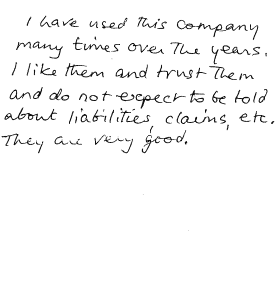 I have used this company
many times over the years.
I like them and trust them
and do not expect to be told
about liabilities, claims, etc.
They are very good.